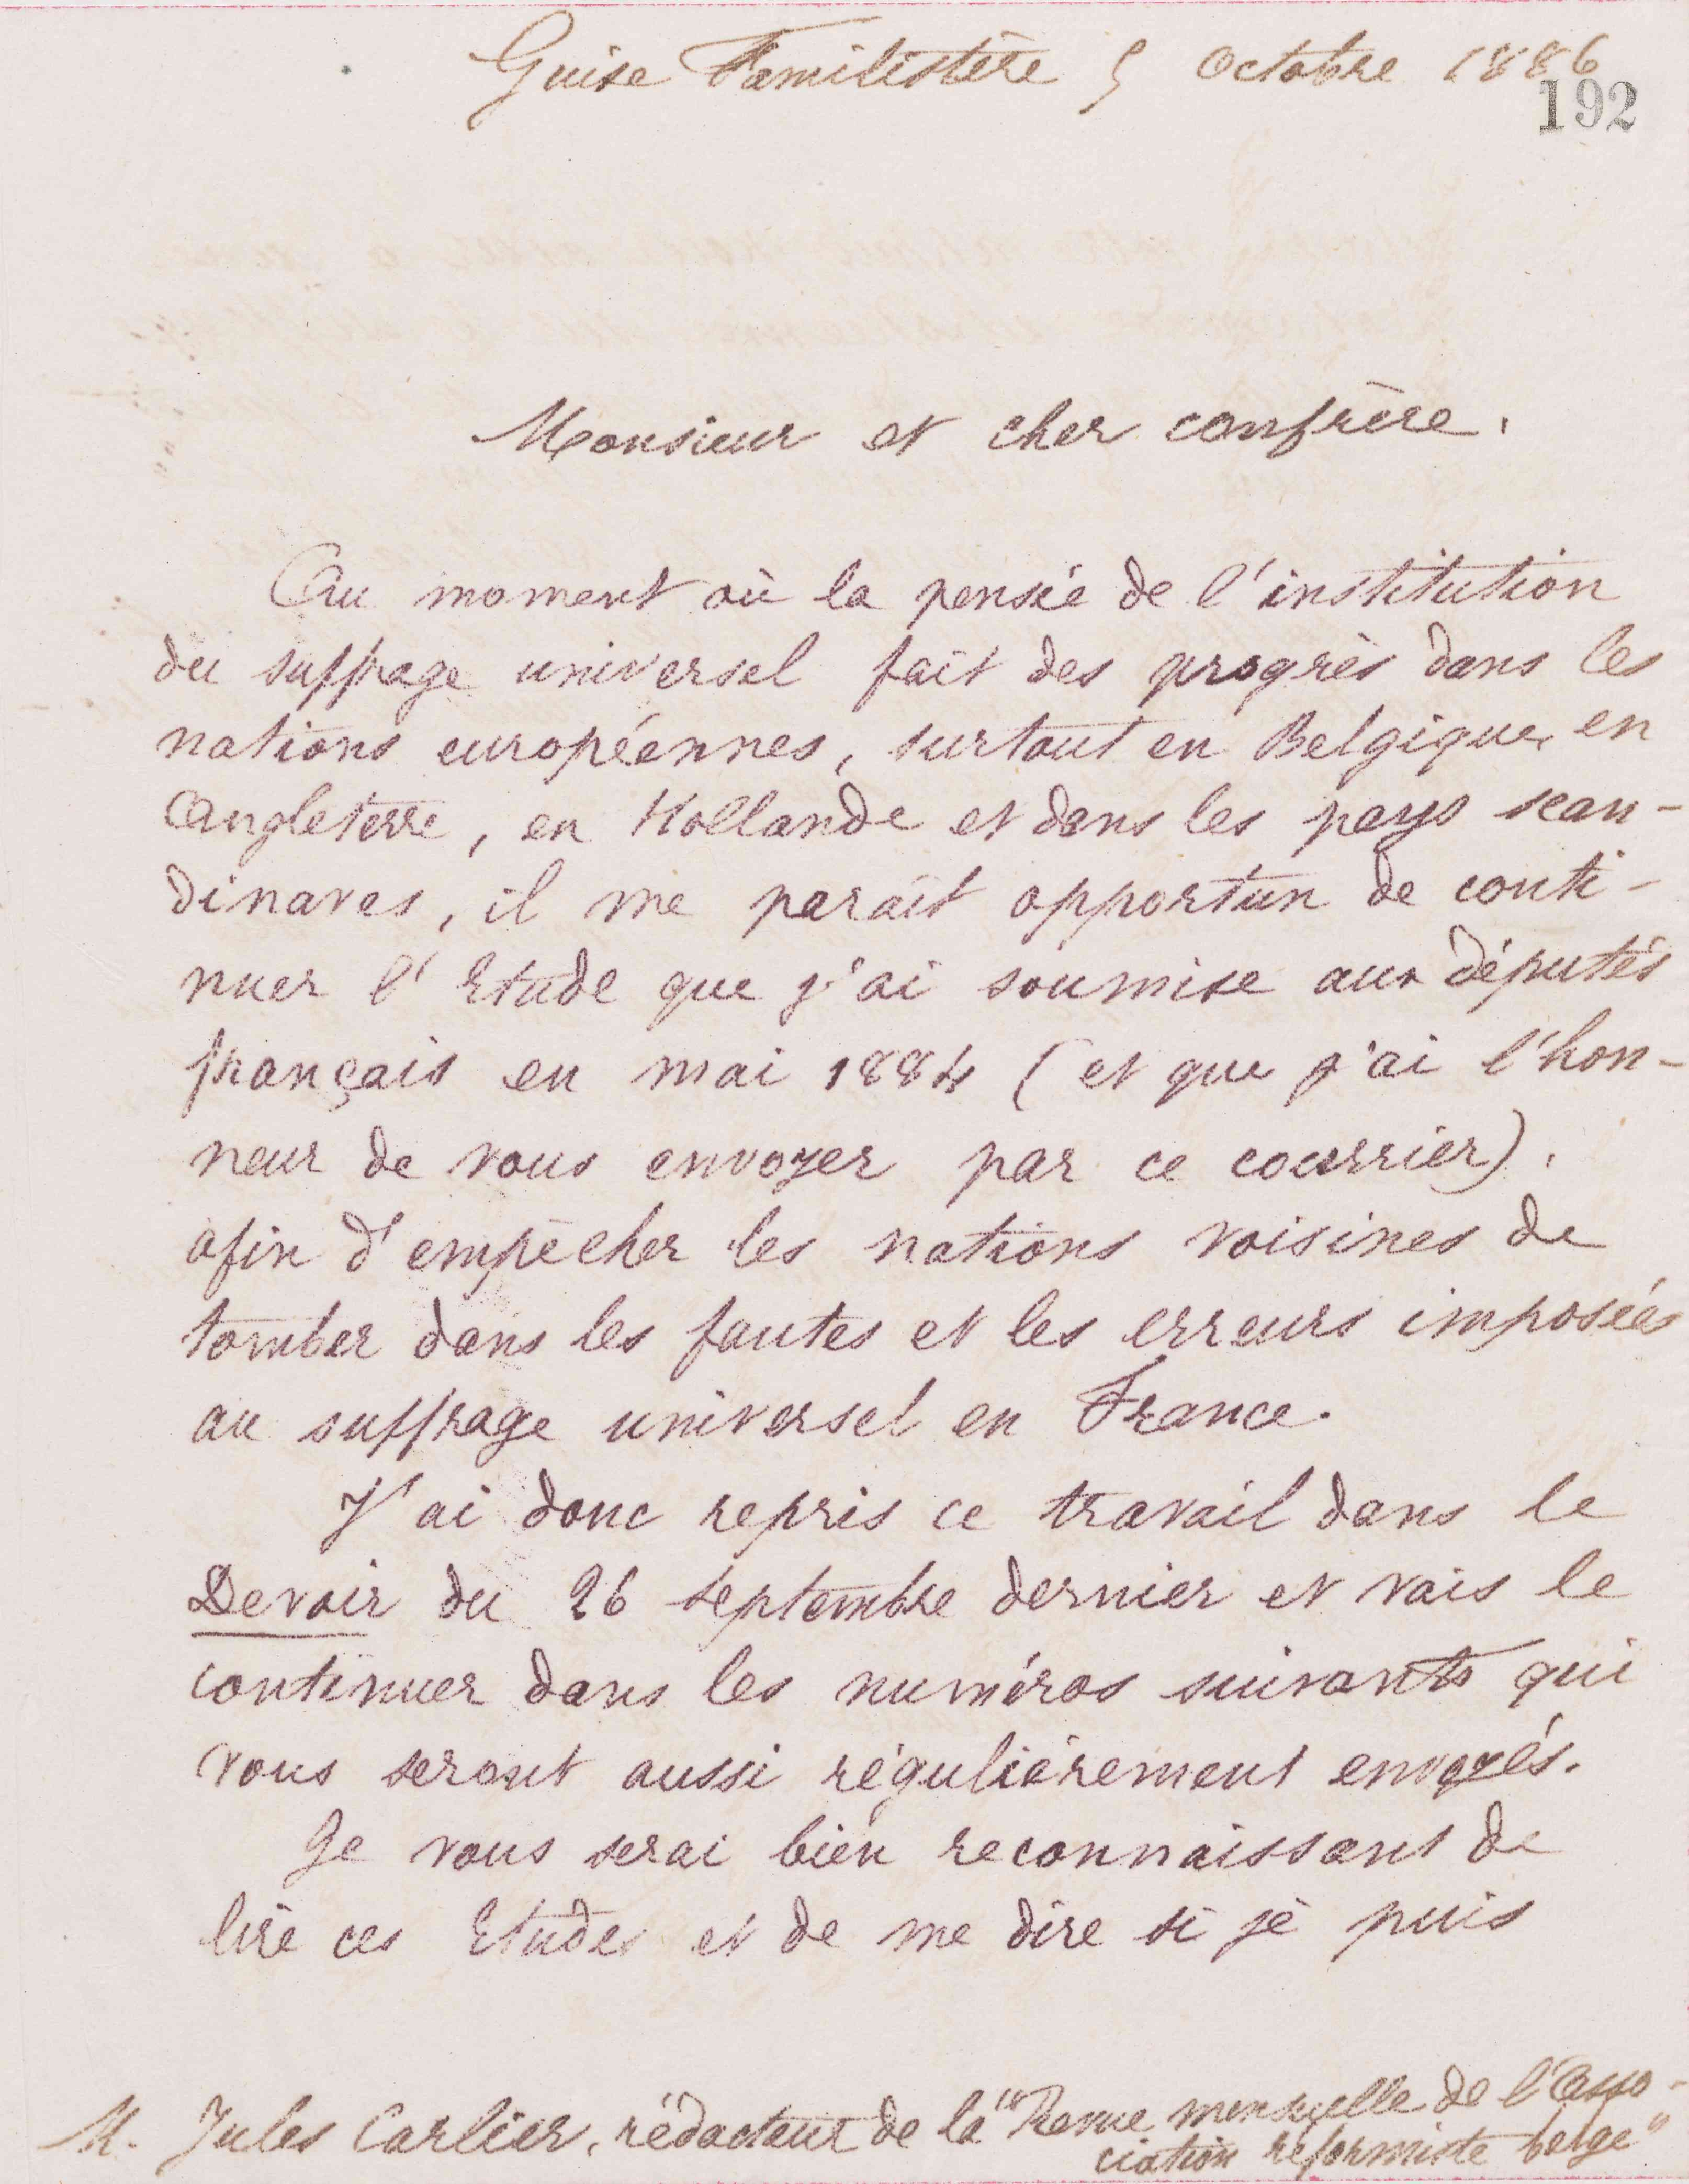 Guise Familistère 5 Octobre 1886
192
Monsieur et cher confrère,
Au moment où la pensée de l'institution
du suffrage universel fait des progrès dans les
nations européennes, surtout en Belgique, en
Angleterre, en Hollande et dans les pays scan-
dinaves, il me paraît opportun de conti-
nuer l'Etude que j'ai soumise aux députés
français en mai 1884 (et que j'ai l'hon-
neur de vous envoyer par ce courrier),
afin d'empêcher les nations voisines de
tomber dans les fautes et les erreurs imposées
au suffrage universel en France.
J'ai donc repris ce travail dans le
Devoir du 26 septembre dernier et vais le
continuer dans les numéros suivants qui
vous seront aussi régulièrement envoyés.
Je vous serai bien reconnaissant de
lire ces Etudes et de me dire si je puis
M. Jules Carlier, rédacteur de la "Revue mensuelle de l'Asso-
ciation réformiste belge"